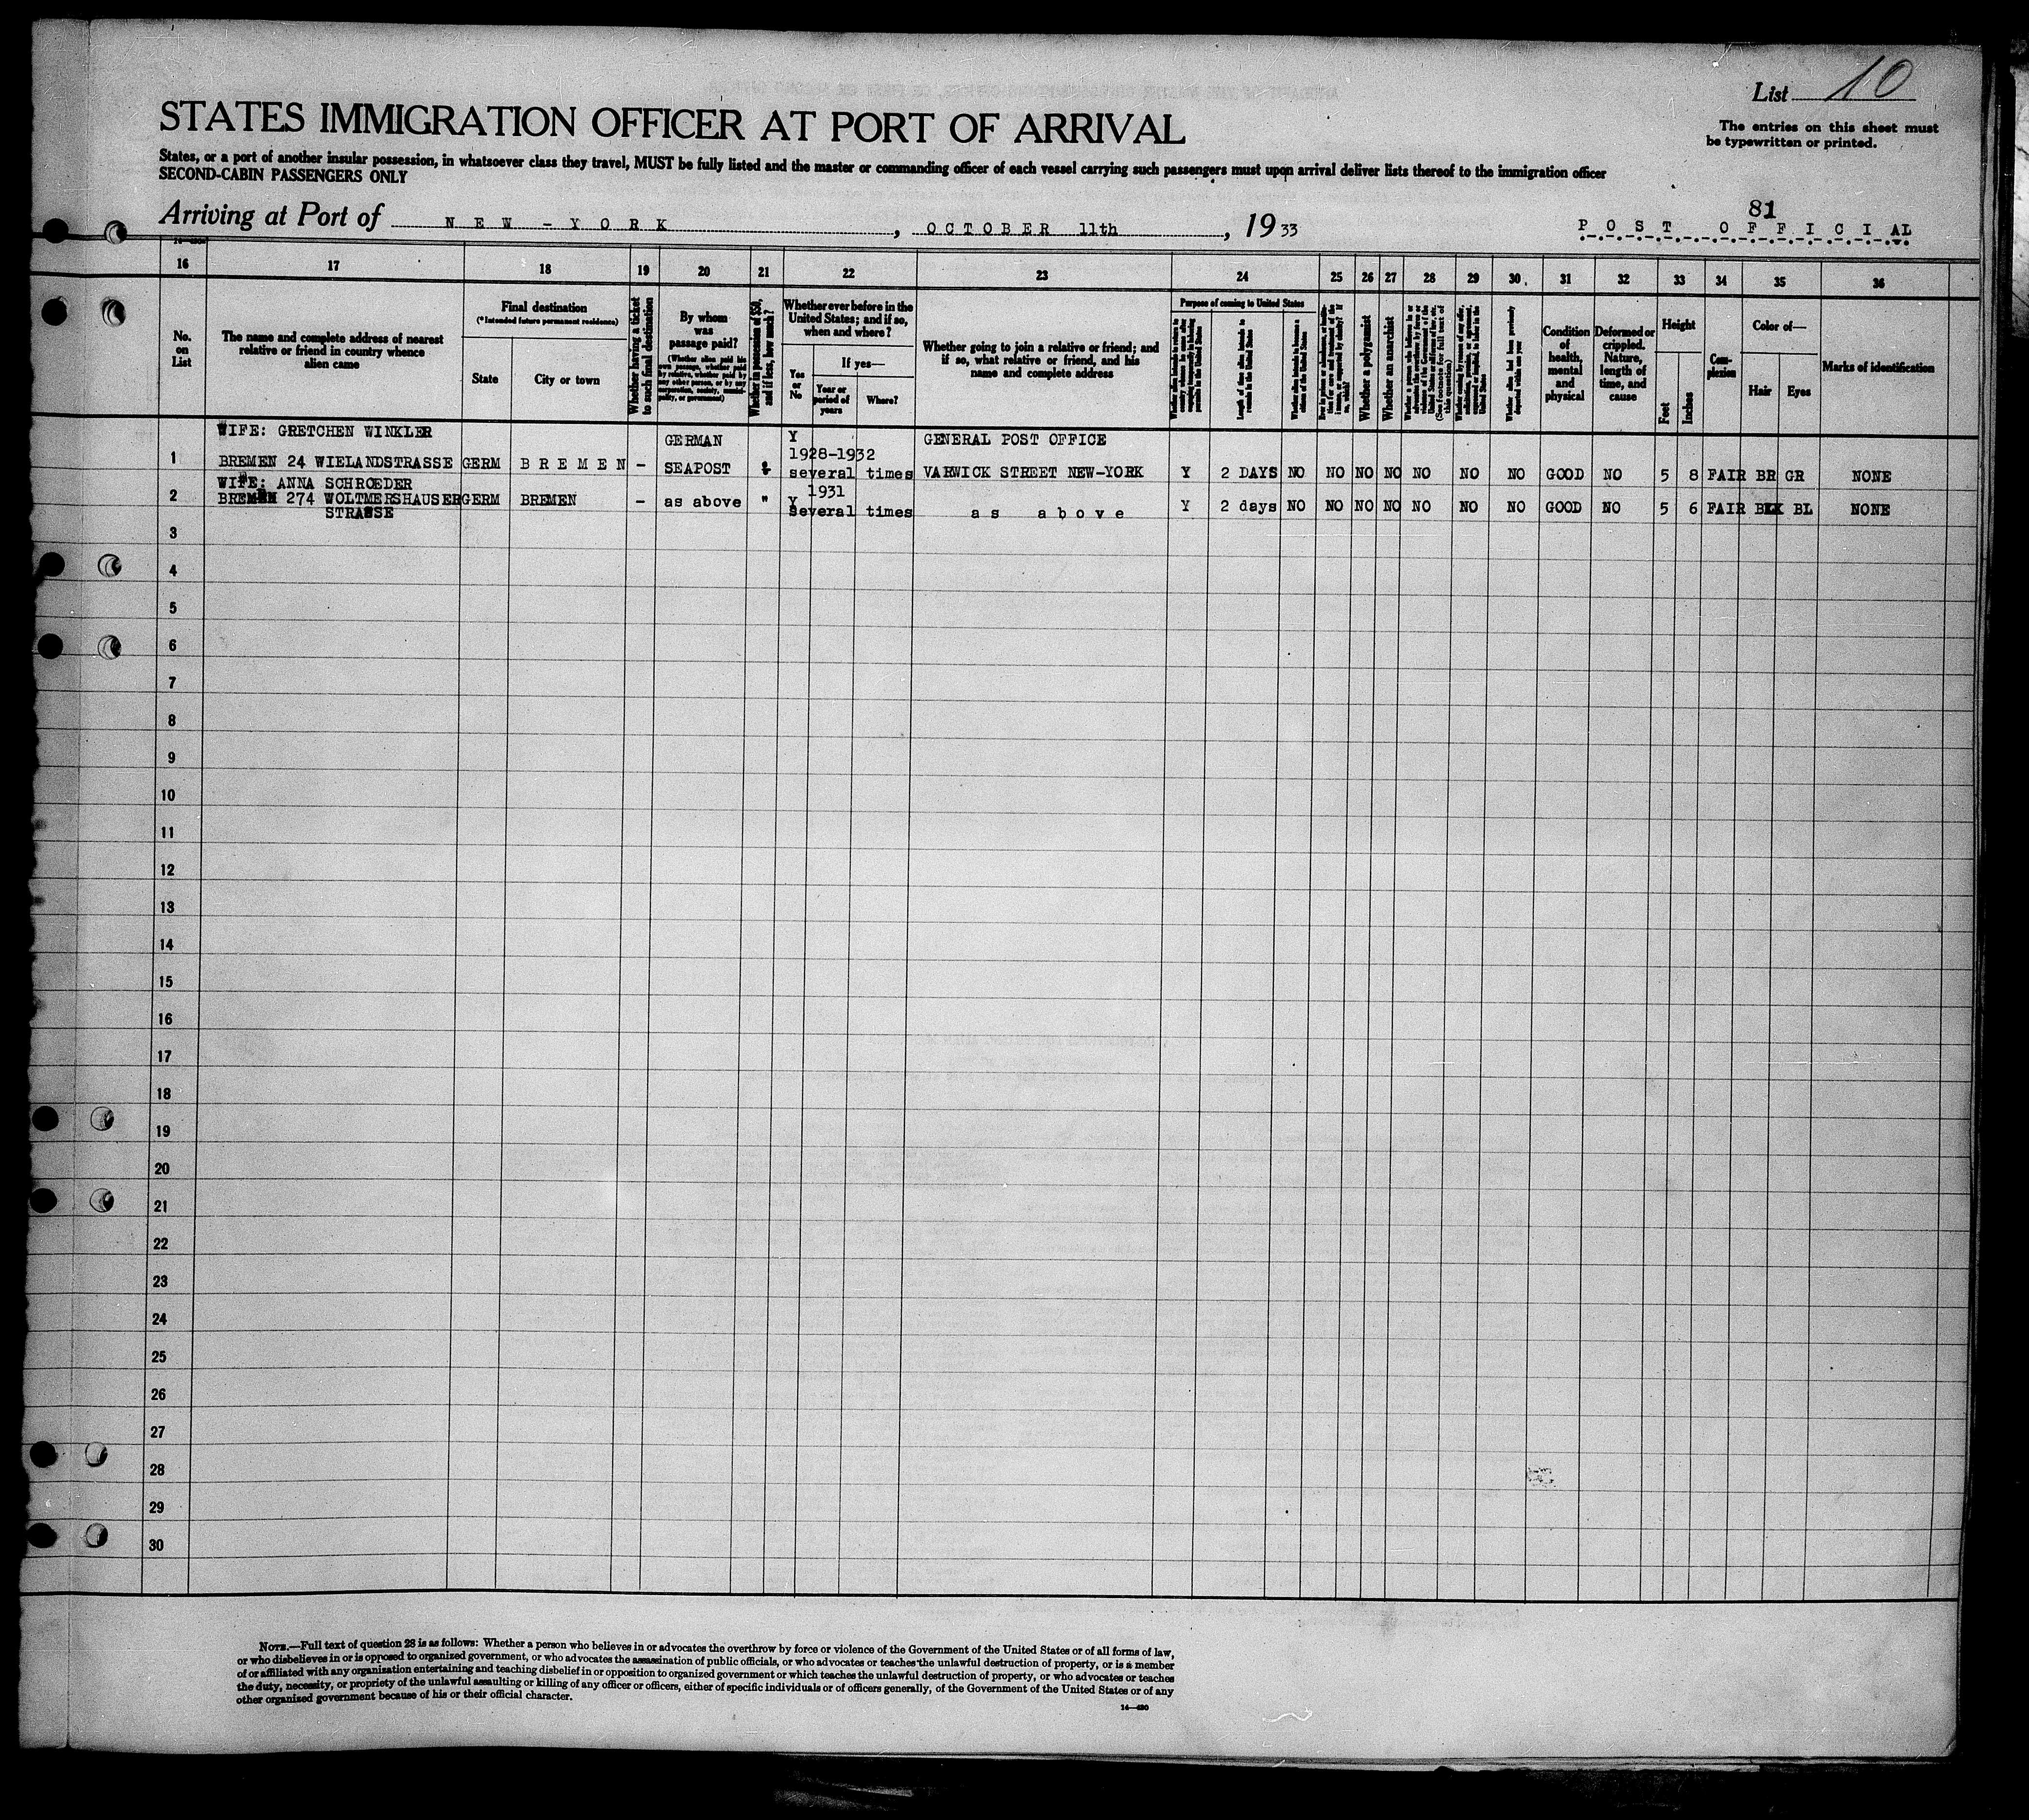 List 10
The entries on this sheet must
be typewritten or printed.
STATES IMMIGRATION OFFICER AT PORT OF ARRIVAL
States, or a port of another insular possession, in whatsoever class they travel, MUST be fully listed and the master or commanding officer of each vessel carrying such passengers must upon arrival deliver lists thereof to the immigration officer
SECOND-CABIN PASSENGERS ONLY
81
Arriving at Port of NEW-YORK, OCTOBER 11th, 1933 POST OFFICIAL
16 17 18 19 20 21 22 23 24 25 26 27 28 29 30 31 32 33 34 35 36
No. on List
The name and complete address of nearest relative or friend in country whence alien came
Final destination
(*Intended future permanent residence)
State
City or town
Whether having a ticket to such final destination
By whom was passage paid?
(Whether alien paid his own passage, whether paid by relative, whether paid by any other person, or by any corporation, society, municipality, or government)
Whether in possession of $50, and if less, how much?
Whether ever before in the United States; and if so, when and where?
Yes or No
If yes—
Year or period of years
Where?
Whether going to join a relative or friend; and if so, what relative or friend, and his name and complete address
Purpose of coming to United States
Length of time alien intends to remain in the United States
Whether alien intends to become a citizen of the United States
Whether a polygamist
Whether an anarchist
(See footnote for full text of this question)
Whether alien had been previously deported within one year
Condition of health, mental and physical
Deformed or crippled. Nature, length of time, and cause
Height
Feet
Inches
Complexion
Color of—
Hair
Eyes
Marks of identification
WIFE: GRETCHEN WINKLER GERMAN Y GENERAL POST OFFICE
1928-1932
1 BREMEN 24 WIELANDSTRASSE GERM BREMEN - SEAPOST several times VARWICK STREET NEW-YORK Y 2 DAYS NO NO NO NO NO NO NO GOOD NO 5 8 FAIR BR GR NONE
WIFE: ANNA SCHROEDER 1931
2 BREMEN 274 WOLTMERSHAUSER GERM BREMEN - as above " Y several times as above Y 2 days NO NO NO NO NO NO NO GOOD NO 5 6 FAIR BL NONE
STRASSE
3
4
5
6
7
8
9
10
11
12
13
14
15
16
17
18
19
20
21
22
23
24
25
26
27
28
29
30
NOTE.—Full text of question 28 is as follows: Whether a person who believes in or advocates the overthrow by force or violence of the Government of the United States or of all forms of law,
or who disbelieves in or is opposed to organized government, or who advocates the assassination of public officials, or who advocates or teaches the unlawful destruction of property, or is a member
of or affiliated with any organization entertaining and teaching disbelief in or opposition to organized government or which teaches the unlawful destruction of property, or who advocates or teaches
the duty, necessity, or propriety of the unlawful assaulting or killing of any officer or officers, either of specific individuals or of officers generally, of the Government of the United States or of any
other organized government because of his or their official character.
14—430